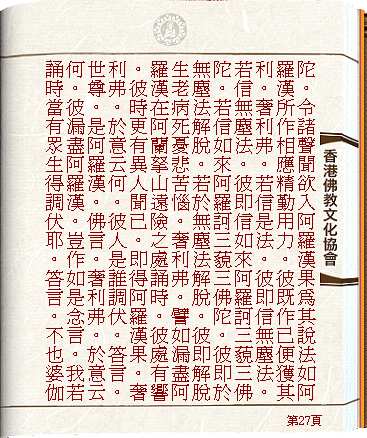 陀。令諸聲聞欲入阿羅漢果為其說法如阿
羅漢所作相應精勤用力。彼既作已便獲其
利。奢利弗。若信是法。彼即信無塵法。
若信無塵法。彼即信如來阿羅訶三藐三佛
陀。若信如來阿羅訶三藐三佛陀。彼即於
無塵法解脫。若於無塵法解脫。彼即解脫
生老病死憂悲苦惱。奢利弗。譬如漏盡阿
羅漢在阿蘭拏山遠險之處誦時。彼處有響
。彼時更有異人聞已。即得阿羅漢果。奢
利弗。於意云何。彼人是誰調伏。答言。
世尊。是阿羅漢。佛言。奢利弗。於意云
何。彼漏盡阿羅漢。豈作如是念言。我若
誦時當有眾生得調伏耶。答言。不也婆伽
香港佛教文化協會
第27頁